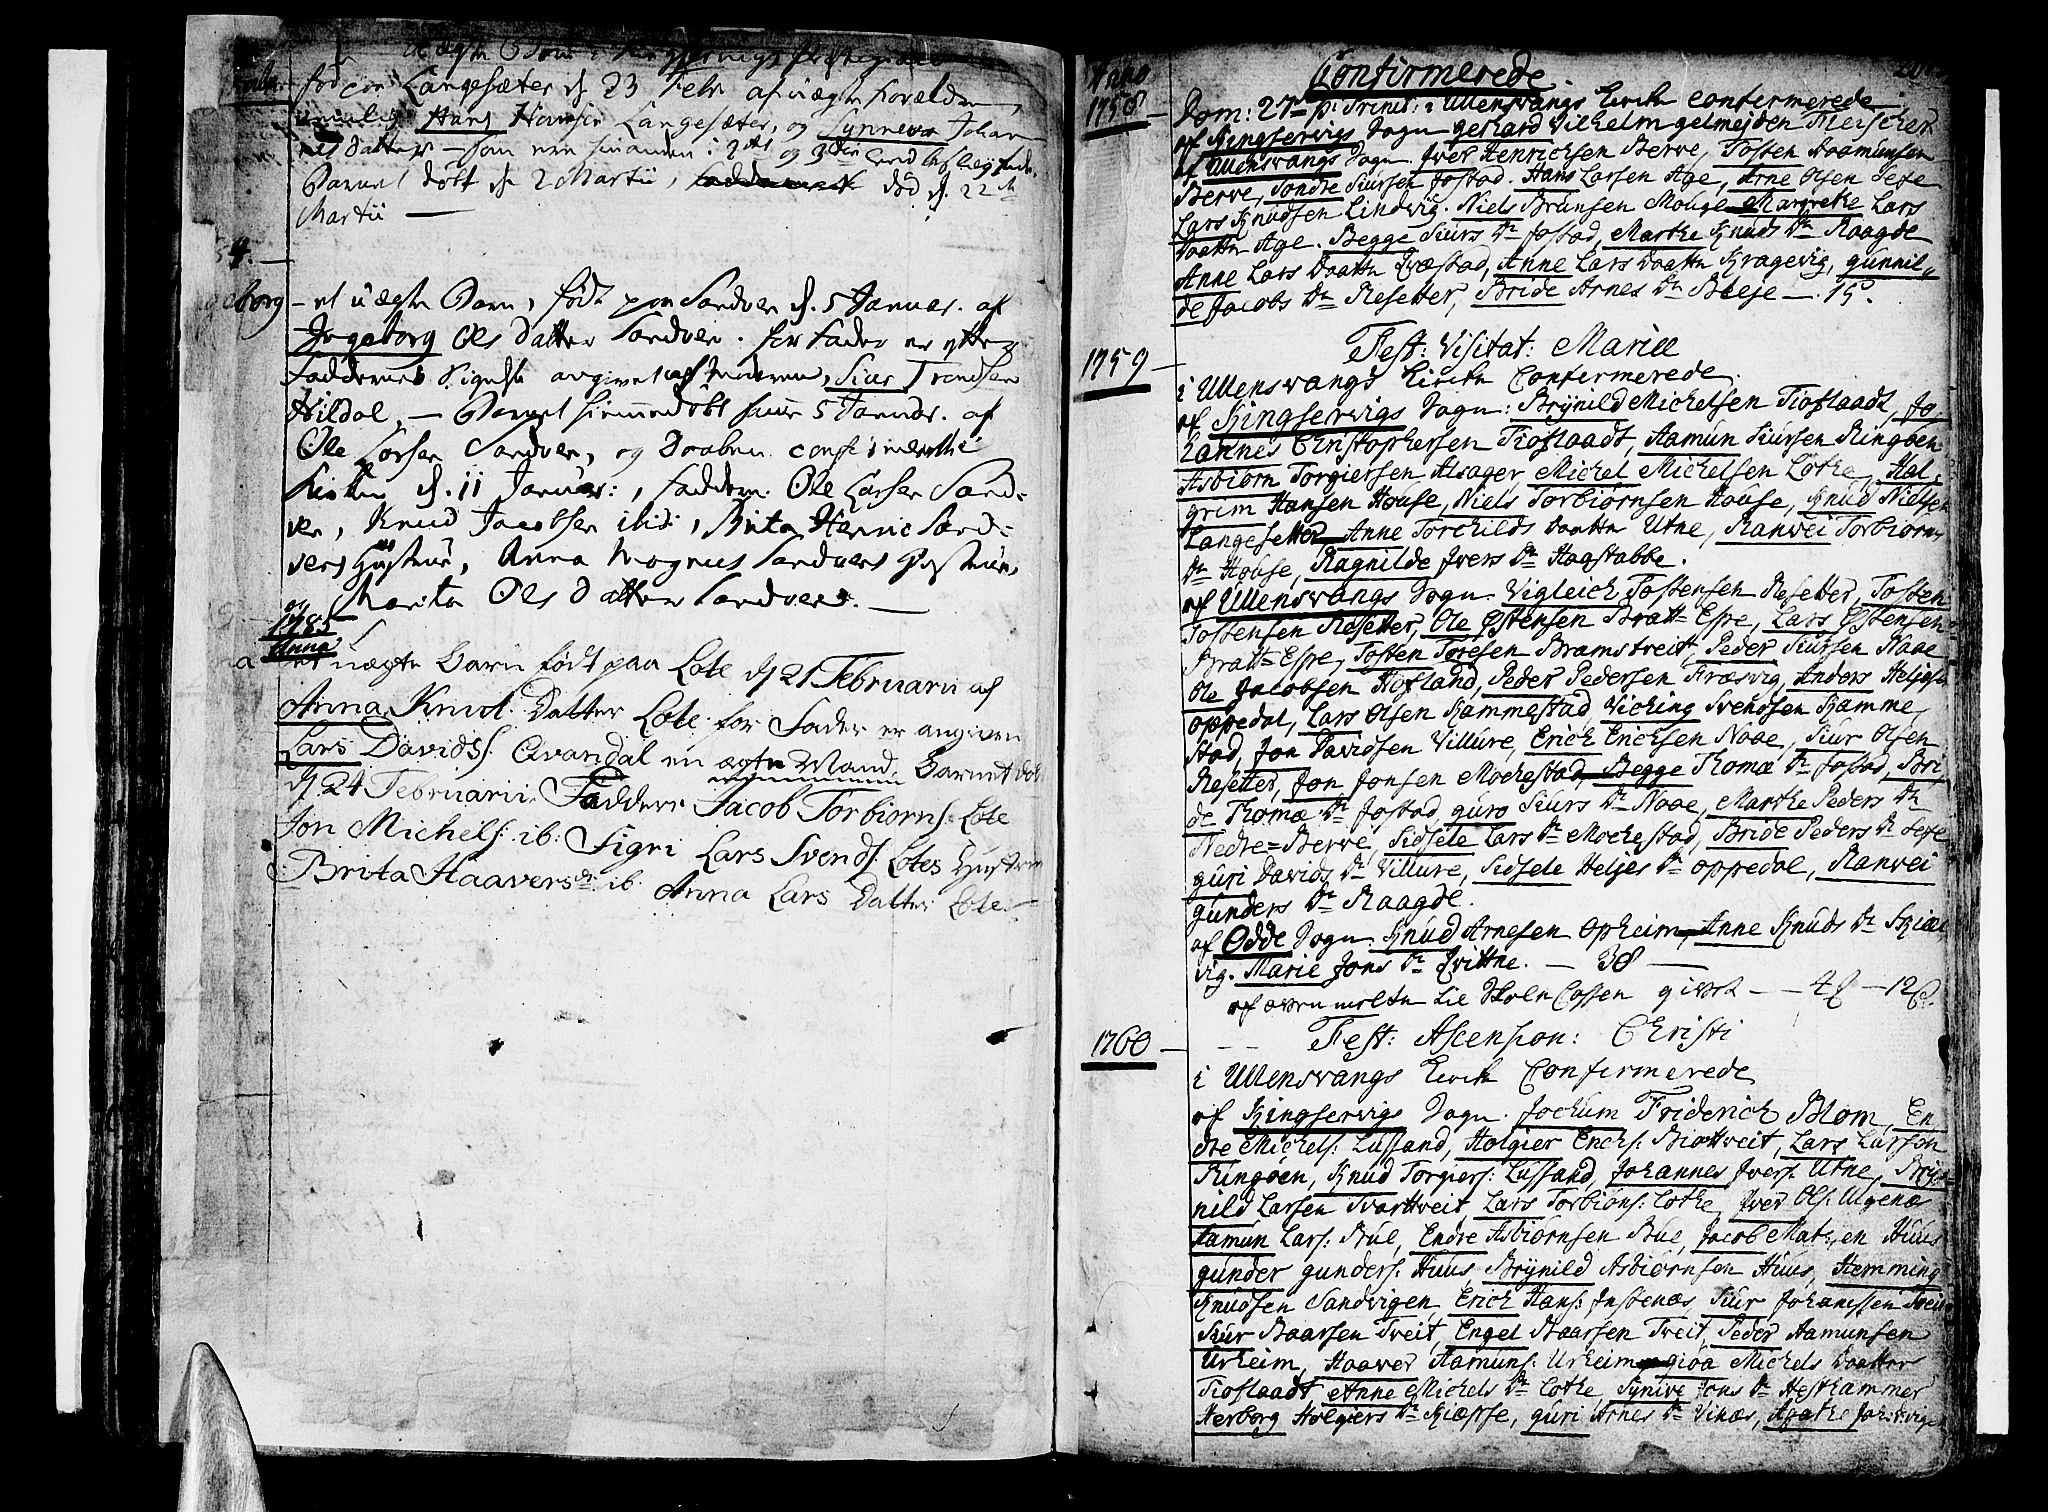 fød paa Langesæter d. 23 Febr af uægte forældre,
Hans Hansen Langesæter, og Synneva Johan
nes Datter
Barnet døbt d. 2 Martii, død d. 22
Martii
4.
- et uægte Barn, født paa Sandven d. 5 Januar. af
Ingeborg Ols Datter Sandven. for Fader er efter
Faddernes Sigelse angivet af Moderen, Siur Trondsen
Hildal, - Barnet hiemmedøbt samme 5 Januar. af
Ole Larsen Sandven, og Daaben confirmeret i
Kirken d. 11 Januar:, Faddere. Ole Larsen Sand-
ven, Knud Jacobsen ibid:, Brita Henric Sand-
vens Hustrue, Anna Magnus Sandvens Hustrue,
og Marita Ols Datter Sandven. -
1785
Anna
et uægte Barn født paa Lote d. 21 Februarii af
Anna Knud Datter Lote. for Fader er angiven
Lars Davids. Qvandal en ægte Mand. Barnet døbt
d. 24 Februarii. Faddere Jacob Torbiorns. Lote
Jon Michels: ib: Sigri Lars Svends. Lotes Hustrue
Brita Haavers dr ib. Anna Lars Datter Lote.
Confirmerede.
Anno
1758
Dom: 27de p: Trinit: i Ullensvangs Kirke confirmerede
af Kingservigs Sogn gerhard Vilhelm gelmejden Fleischer
af Ullensvangs Sogn. Iver Henrichsen Berve, Tosten Aamunsen
Berve, Sondre Siursen Jostad. Hans Larsen Age, Arne Olsen Sexe
Lars Knudsen Lindvig. Niels Brunsen Mouge Margrethe Lars
Daatter Age. Begge Siurs Dr Jostad, Marthe Knuds Dr Raagde
Anne Lars Daatter Træstad, Anne Lars Daatter Kragevig, gunnil-
de Jacobs Dr Resetter, Bride Arnes Dr Bleje - 15.
1759
Fest: Visitat: Mariæ
i Ullensvangs Kirke Confirmerede.
af Kingservigs Sogn: Brynild Michelsen Tioflaadt, Jo-
hannes Christophersen Tioflaadt, Aamun Siursen Ringøen
Asbiørn Torgiersen Alsager Michel Michelsen Lothe, Hal-
grim Hansen House, Niels Torbiørnsen House, Knud Nielsen
Langesetter Anne Torchilds Daatter Utne, Ranvei Torbiørns
Dr House, Ragnilde Ivers Dr Haastabbe.
af Ullensvangs Sogn. Vigleich Tostensen Resetter, Tosten
Tostensen Resetter, Ole Østensen Bratt=Espe, Lars Østensen
Bratt=Espe, Tosten Toresen Bramstreit, Peder Siursen Naae
Ole Jacobsen Hofland, Peder Pedersen Fræsvig, Anders Heljesen
oppedal, Lars Olsen Hammestad, Viching Svendsen Hamme,
stad, Jon Davidsen Villure, Erich Erichsen Naae, Siur Olsen
Resetter, Jon Jonsen Mochestad, Begge Thomæ Dr Jostad, Bri
de Thomæ Dr Jostad, guro Siurs Dr Naae, Marthe Peders Dr
Nedre=Berve, Sidsele Lars Dr Mochestad, Bride Peders Dr Sexe
guri Davids Dr Villure, Sidsele Heljes Dr oppedal, Ranvei
gunders Dr Raagde.
af Odde Sogn. Knud Arnesen Opheim, Anne Knuds Dr Skiæl
vig. Marie Jons Dr Hvittne. - 38 -
af ovenmelte til Skole Cassen givet - 4 - 12
1760
Fest: Ascension: Christi
i Ullensvangs Kirke Confirmerede
af Kingservigs Sogn. Jochum Friderich Blom, En
dre Michels: Lussand, Holgier Erichs: Biotveit, Lars Larsen
Ringøen, Knud Torgiers: Lussand, Johannes Ivers: Utne, Bry-
nild Larsen Tvartveit Lars Torbiøns: Lothe, Iver Ols: Ulgenæs
Aamun Lars: Bue, Endre Asbiørnsen Bue, Jacob Mats:en Huus
gunder gunders: Huus, Brynild Asbiørnsen Huus, Hemming
Knudsen Sandvigen Erich Hans: Instenæs, Siur Johanssen Tveit
Siur Baarsen Tveit, Engel Baarsen Tveit, Peder Aamunsen
Urheim, Haaver Aamuns: Urheim gioa Michels Daatter
Tioflaadt Anne Michels Dr Lothe, Synive Jons Dr Hesthammer
Herborg Holgiers Dr Kiæsse, guri Arnes Dr Vinæs, Agathe